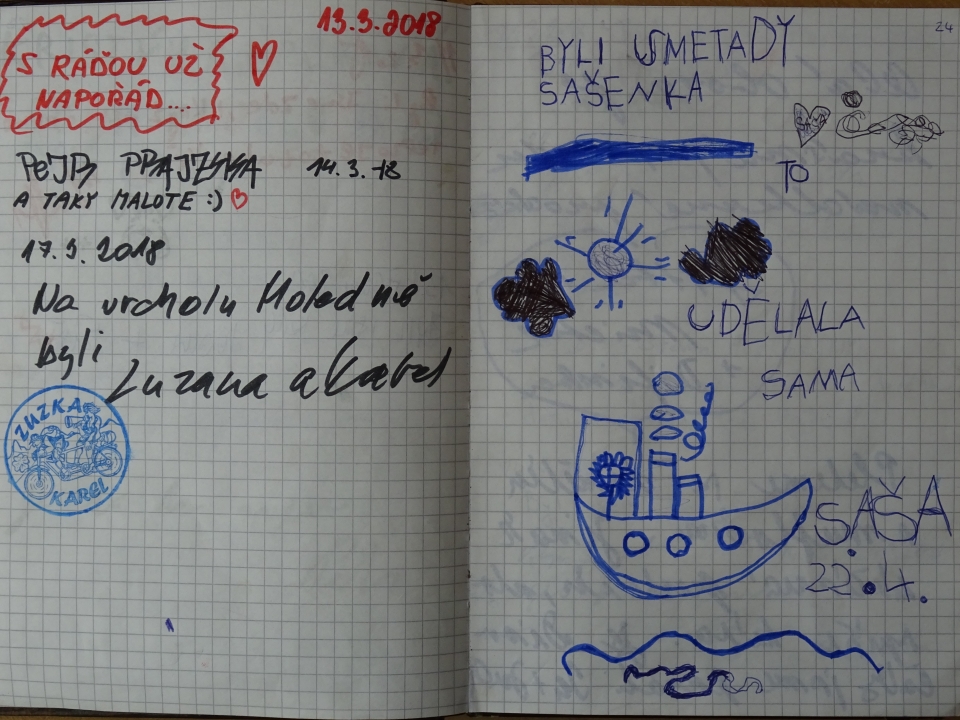 13.3.2018
S RÁĎOU UŽ
NAPOŘÁD...
14.3.18
A TAKY MALOTE :)
17.3.2018
Na vrcholu
byli
Zuzana a Karel
ZUZKA
KAREL
24
BYLI SME TADY
SAŠENKA
TO
UDĚLALA
SAMA
SAŠA
22.4.